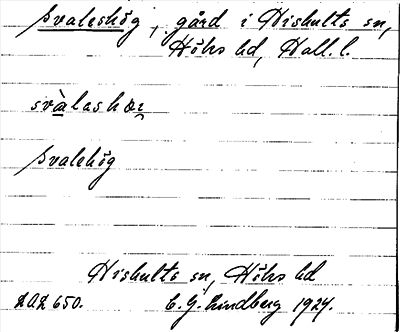 Svaleshög, gård i Hishults sn,
Höks hd, Hall. l.
svàlashœr
Svalehög
Hishults sn, Höks hd
DAL 650. C. G. Lundberg 1927.